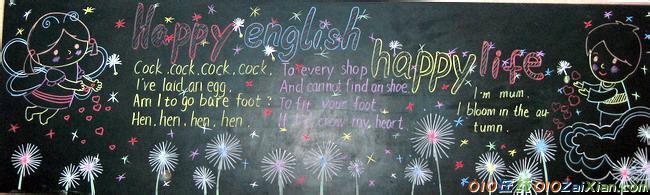 Happy english
happy life
Cock, cock, cock, cock,
I've laid an egg.
Am I to go bare foot?
Hen, hen, hen, hen,
To every shop
And cannot find an shoe
To fit your foot
my heart.
I'm mum,
I bloom in the au
tumn.
010在线010ZaiXian.com